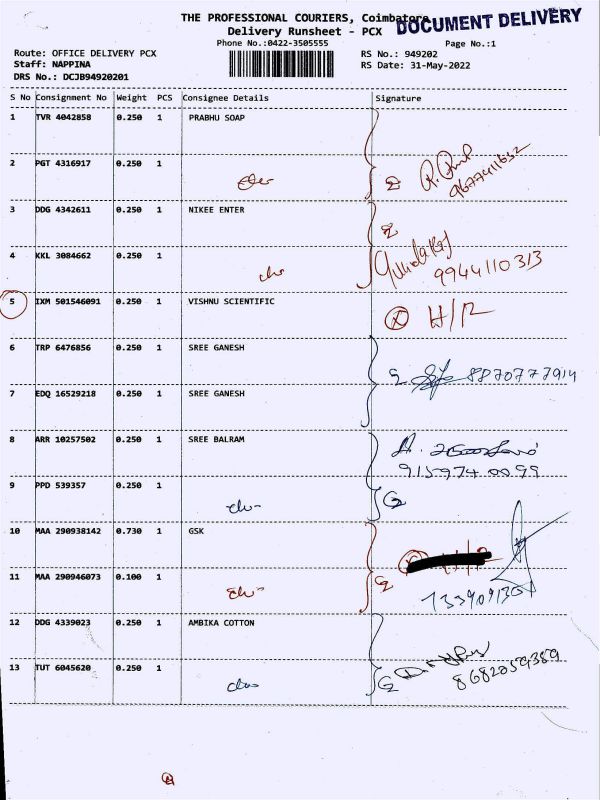 THE PROFESSIONAL COURIERS, Coimbatore
DOCUMENT DELIVERY
Delivery Runsheet - PCX
Phone No.:0422-3505555
Page No.:1
Route: OFFICE DELIVERY PCX
RS No.: 949202
Staff: NAPPINA
RS Date: 31-May-2022
DRS No.: DCJB94920201
S No Consignment No Weight PCS Consignee Details Signature
1 TVR 4042858 0.250 1 PRABHU SOAP
2 PGT 4316917 0.250 1
9677411632
3 DDG 4342611 0.250 1 NIKEE ENTER
4 KKL 3084662 0.250 1
9944110313
5 IXM 501546091 0.250 1 VISHNU SCIENTIFIC
H/R
6 TRP 6476856 0.250 1 SREE GANESH
8870777914
7 EDQ 16529218 0.250 1 SREE GANESH
8 ARR 10257502 0.250 1 SREE BALRAM
9159740099
9 PPD 539357 0.250 1
10 MAA 290938142 0.730 1 GSK
11 MAA 290946073 0.100 1
12 DDG 4339023 0.250 1 AMBIKA COTTON
13 TUT 6045620 0.250 1
8682059389